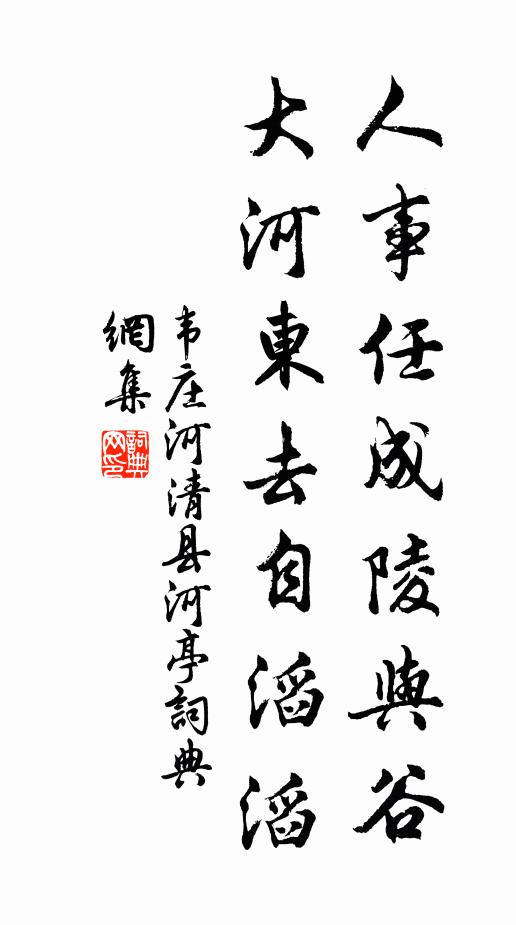 人事任成陵與谷
大河東去自滔滔
韦庄河清县河亭詞典
網集
詞典网印